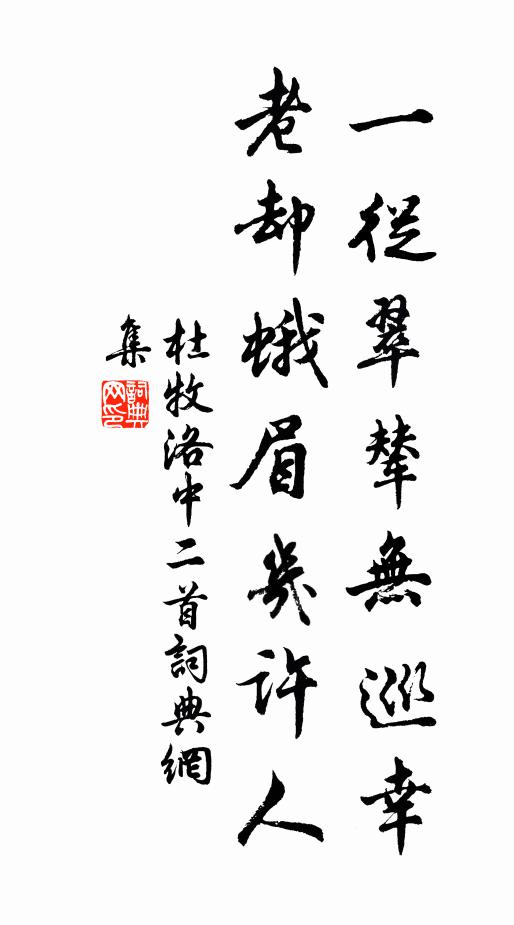 一從翠輦無巡幸
老却蛾眉幾許人
杜牧洛中二首詞典網
集
詞典
网印